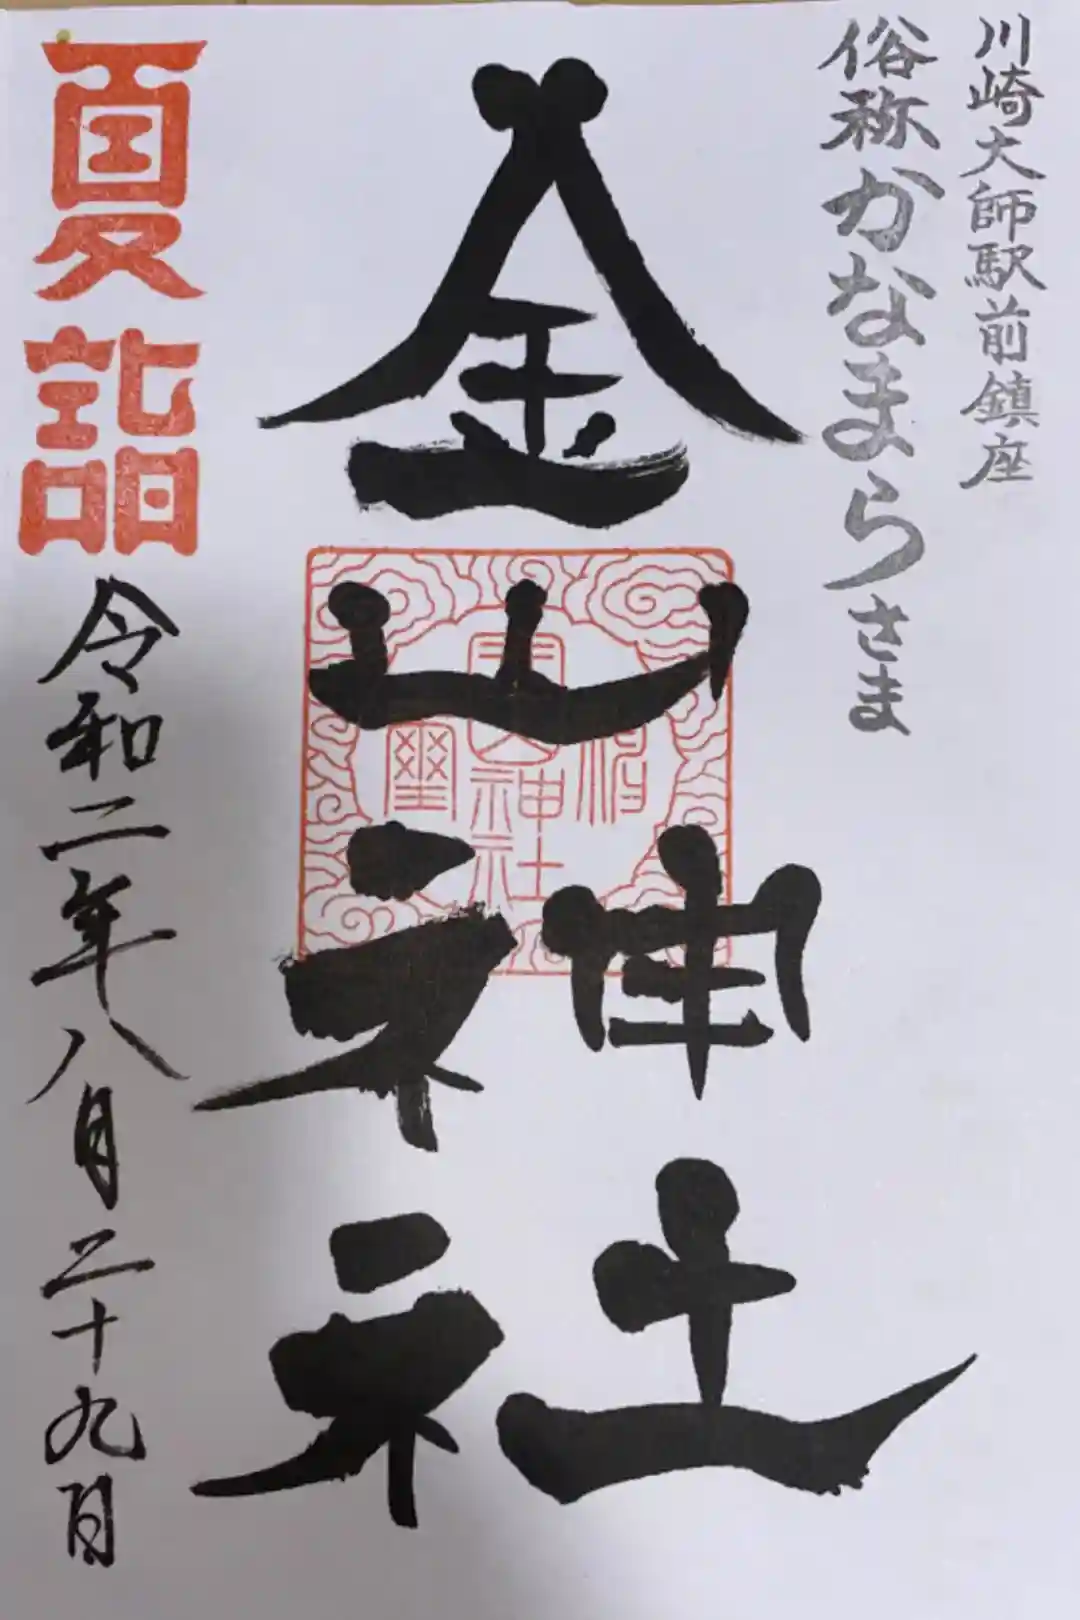 川崎大師駅前鎮座
俗称かなまらさま
金山神社
夏詣
令和二年八月二十九日